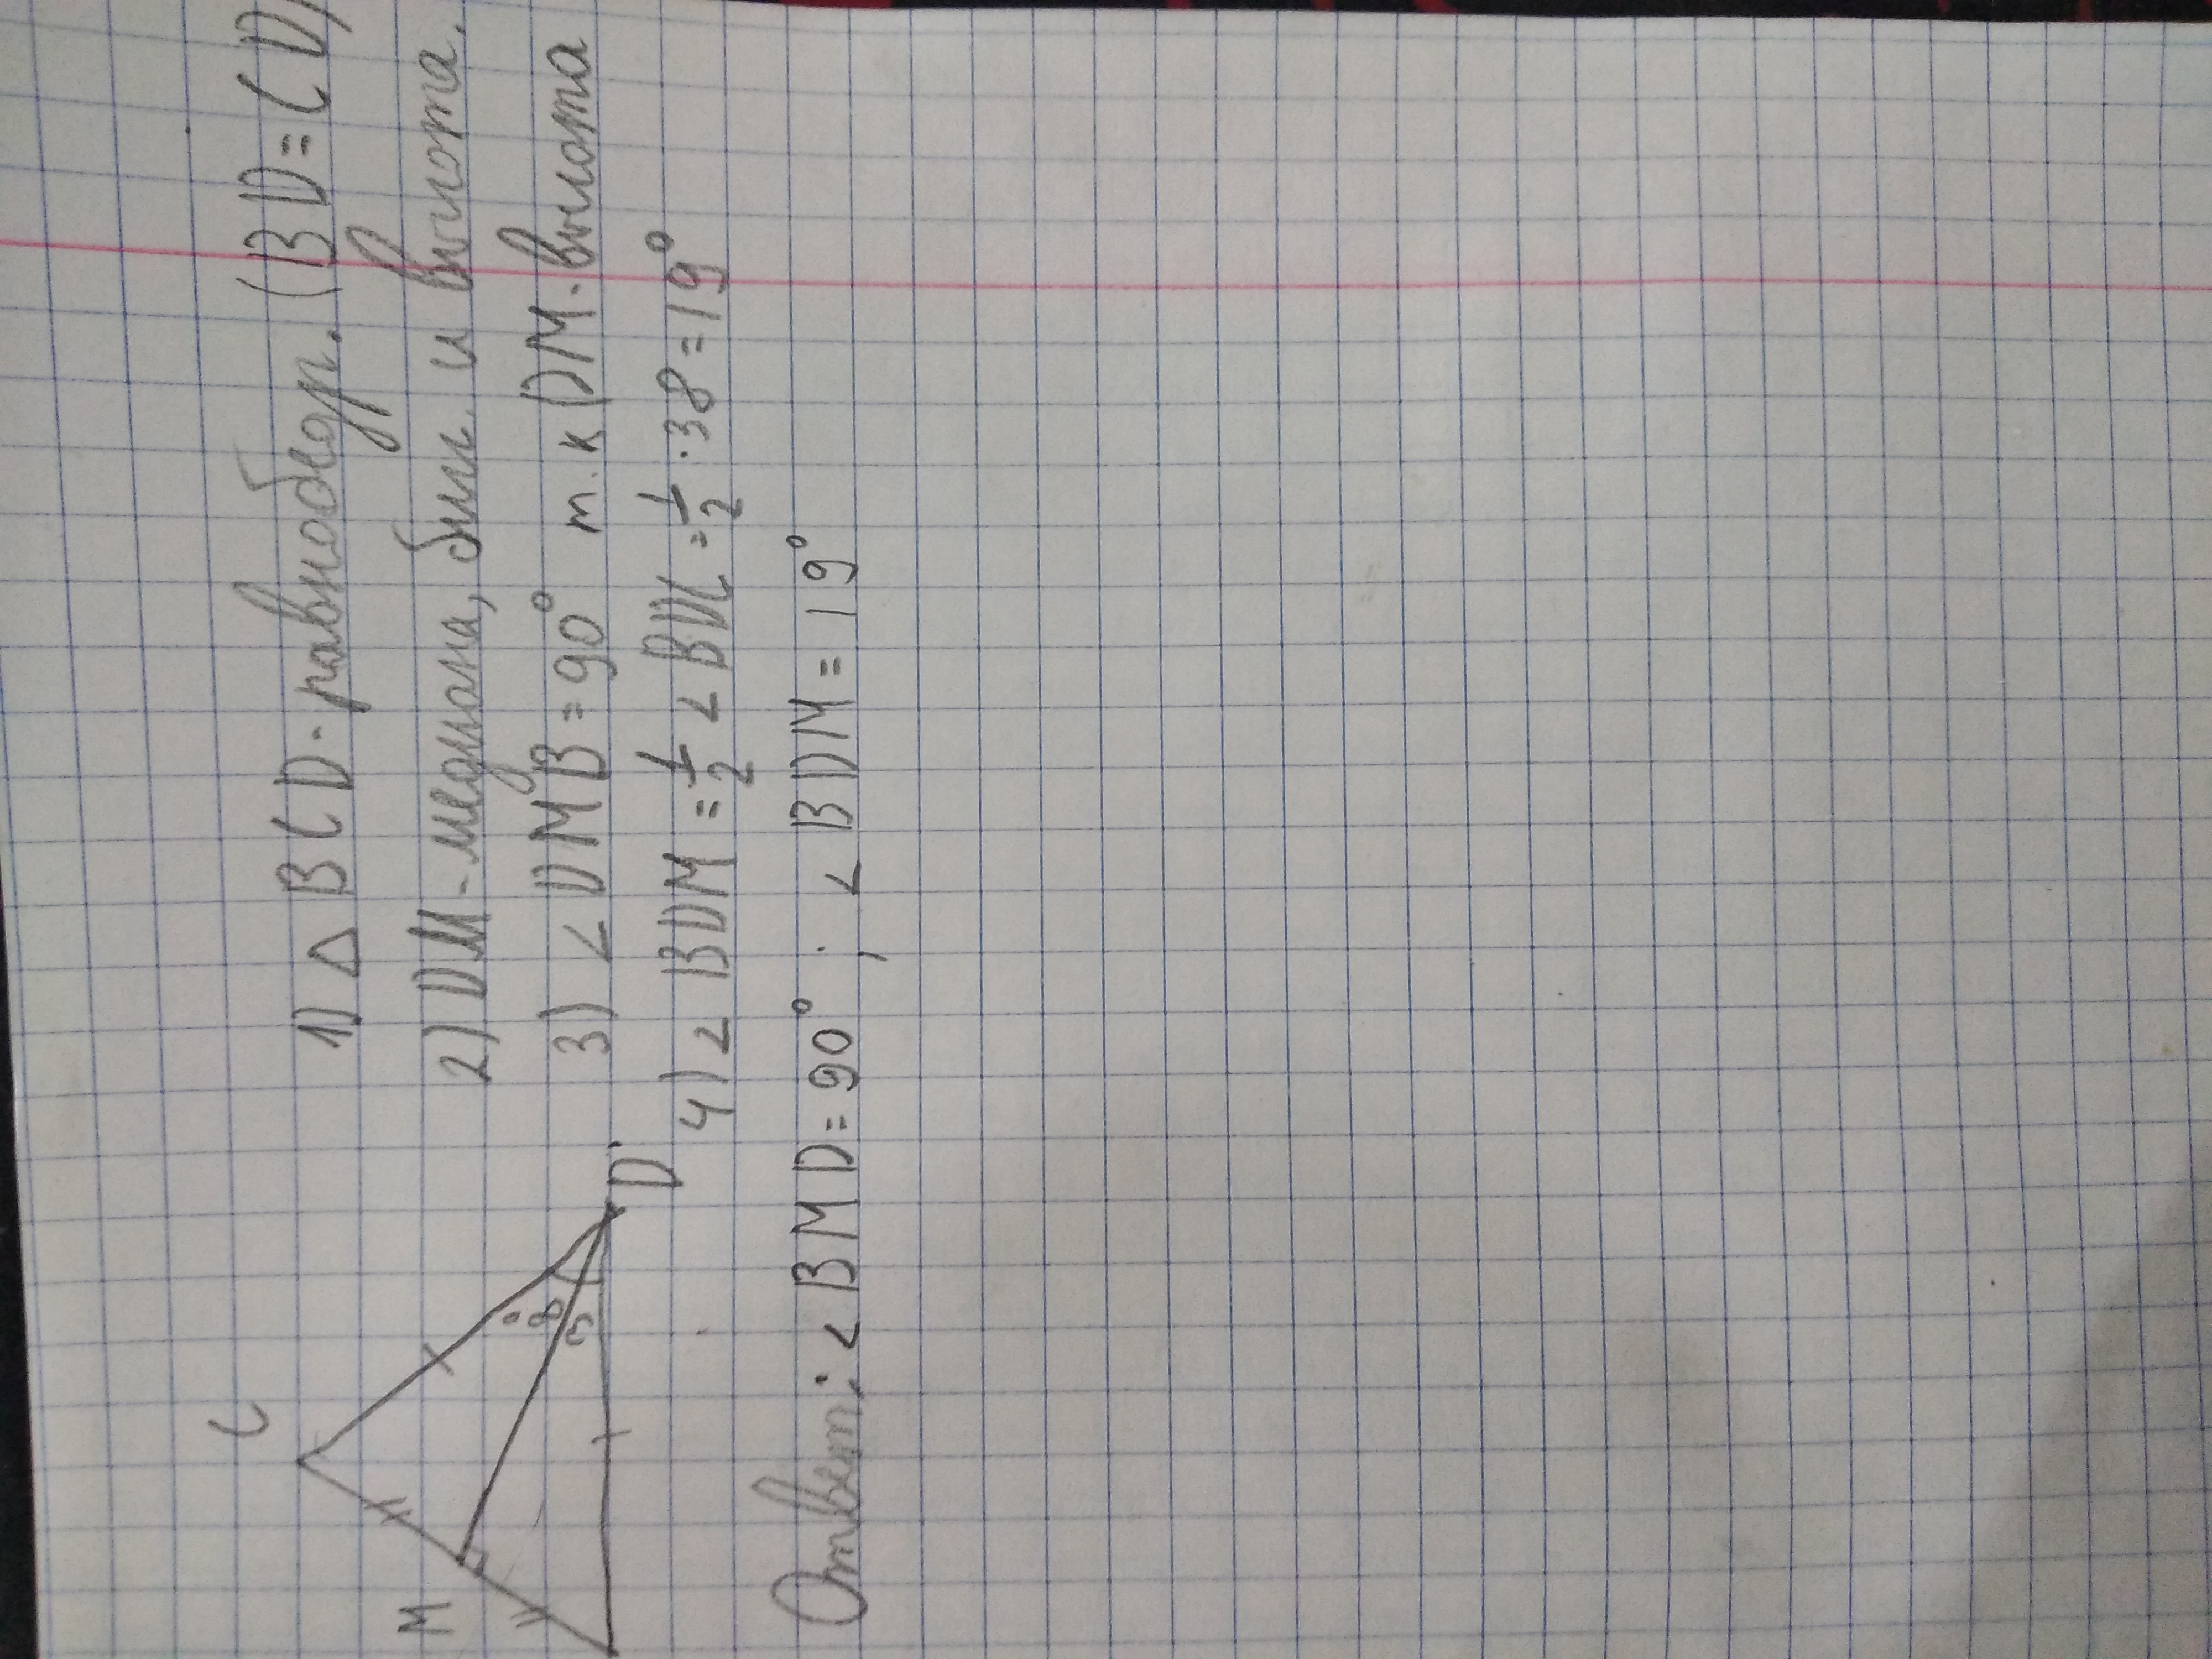 C
M
D
38°
1) △ BCD - равнобедр. (BD = CD)
2) DM - медиана, бис. и высота.
3) ∠ DMB = 90° т.к DM - высота
4) ∠ BDM = 1/2 ∠ BDC = 1/2 · 38 = 19°
Ответ: ∠ BMD = 90° ; ∠ BDM = 19°